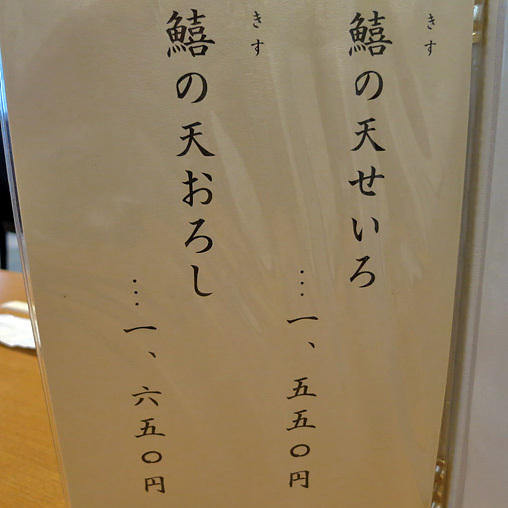 きす
鱚の天せいろ
…一、五五〇円
きす
鱚の天おろし
…一、六五〇円